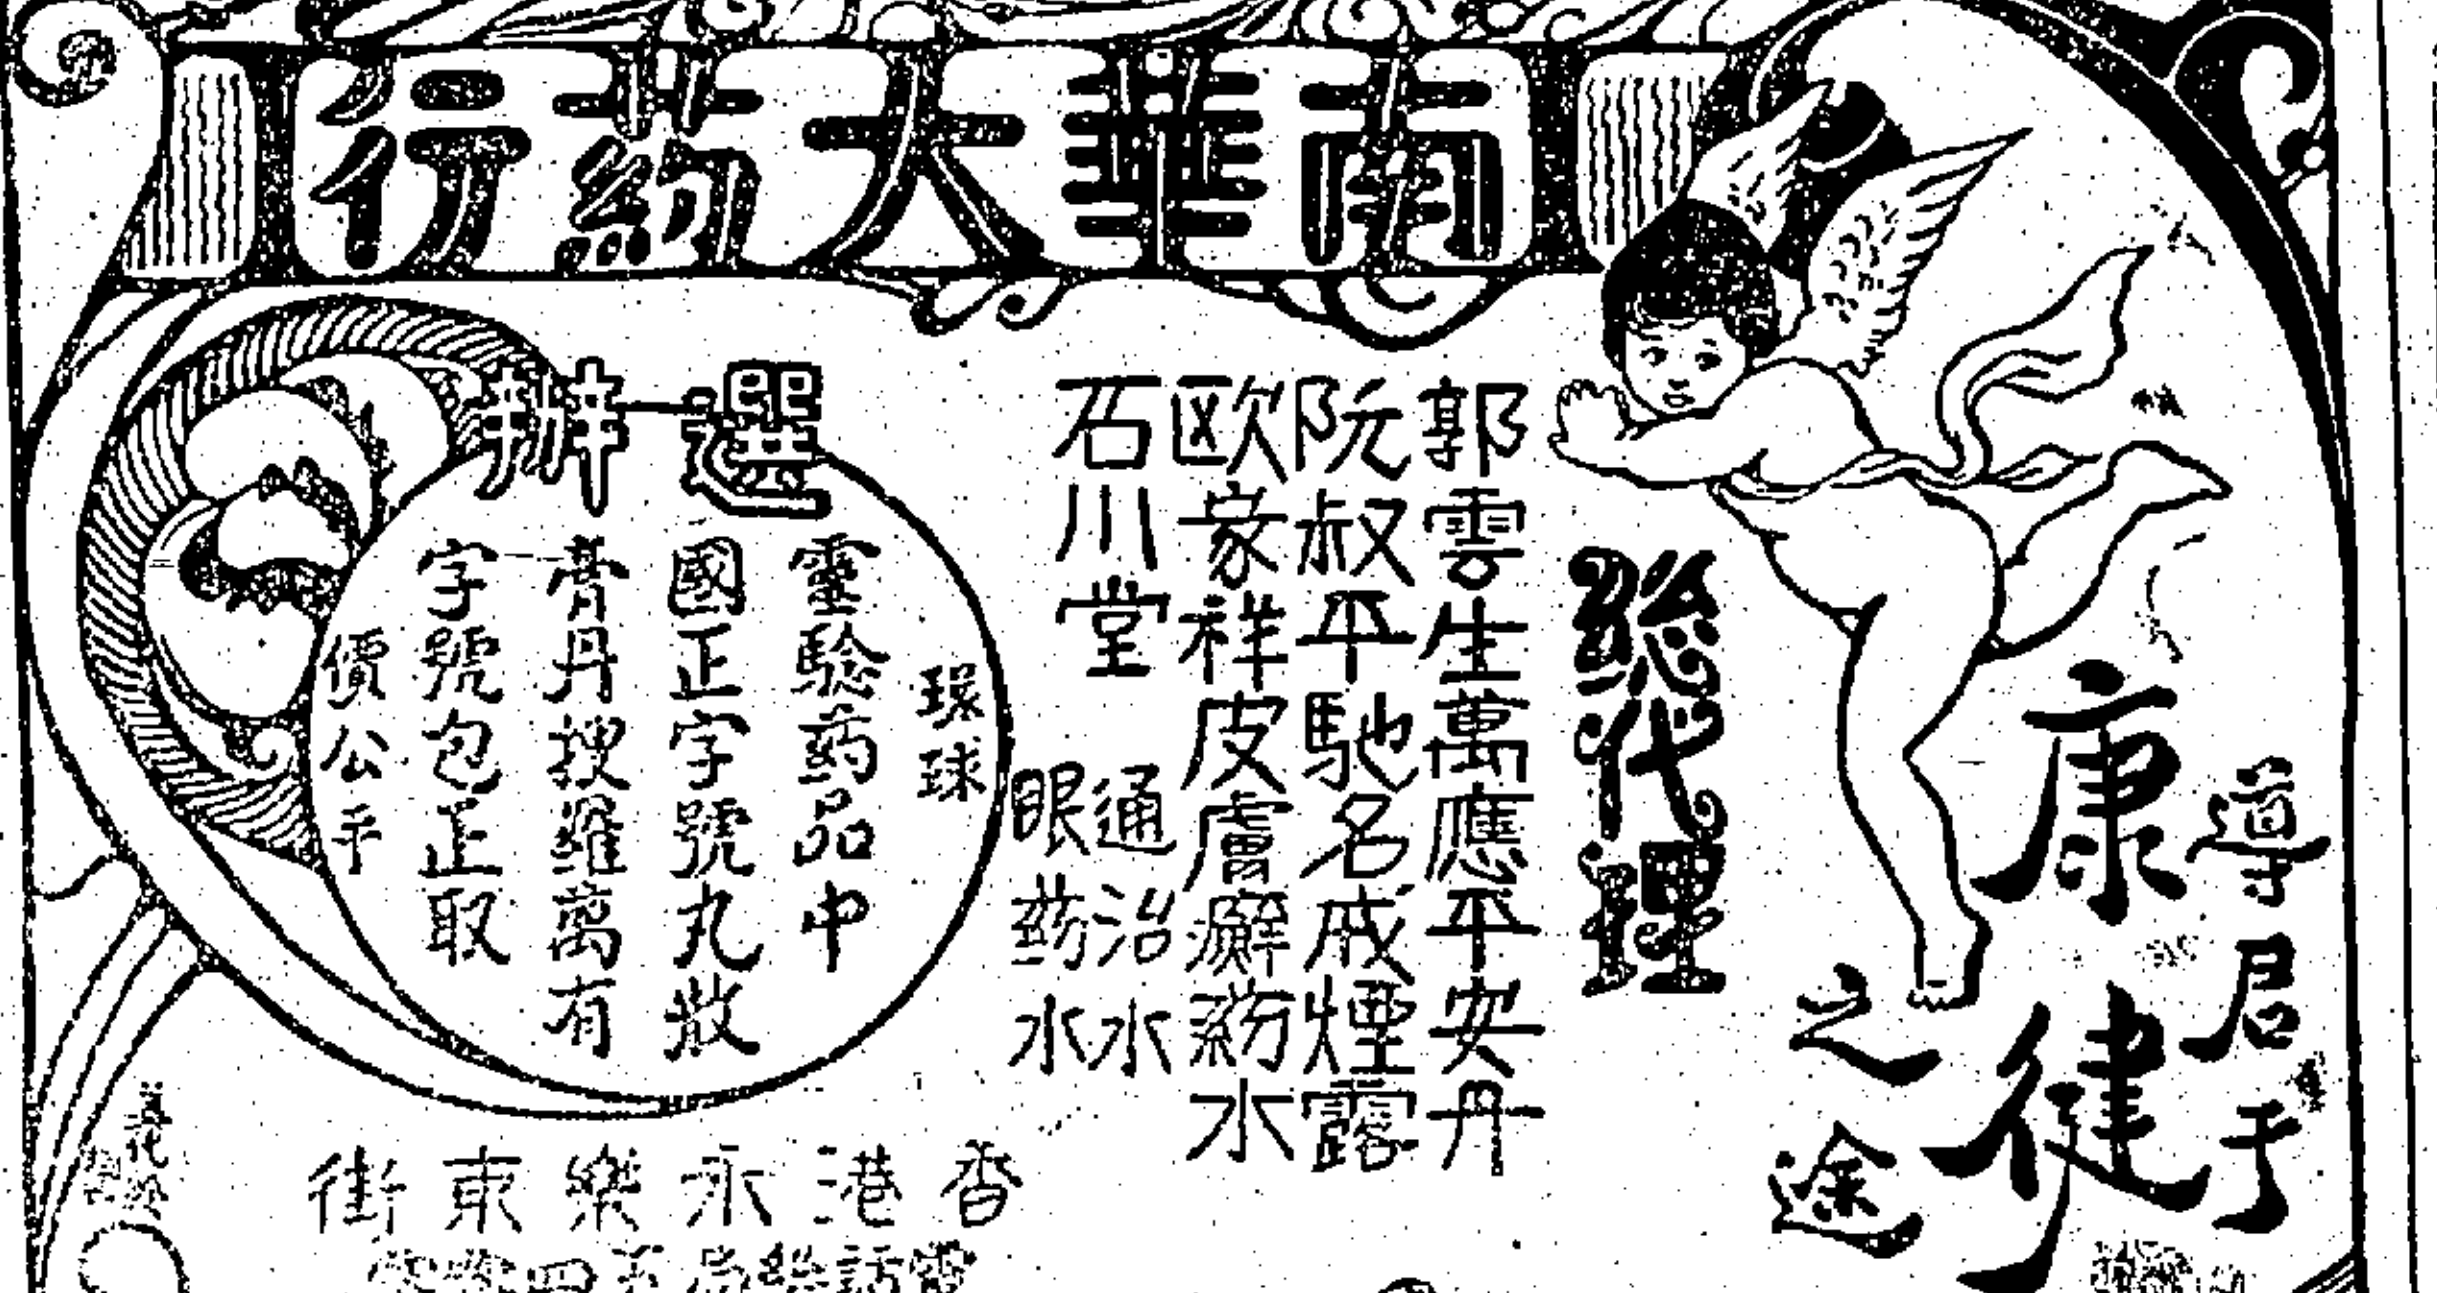 南華大葯行
導君于
康健
之途
總代理
郭雲生萬應平安丹
阮叔平馳名戒煙露
歐家祥皮膚癬葯水
石川堂
通治水
眼葯水
選辦
環球
靈驗葯品中
國正字號丸散
膏丹搜羅萬有
字號包正取
價公平
香港永樂東街